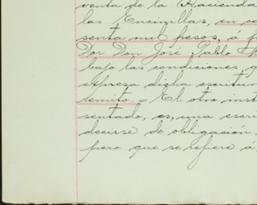 venta de la Hacienda
las Encinillas, en
senta mil pesos, á
Por Don José Pablo
bajo las condiciones,
espresa dicha escritura
El otro inst
sentado, es, una escri
decirse de obligacion
pero que se refiere á